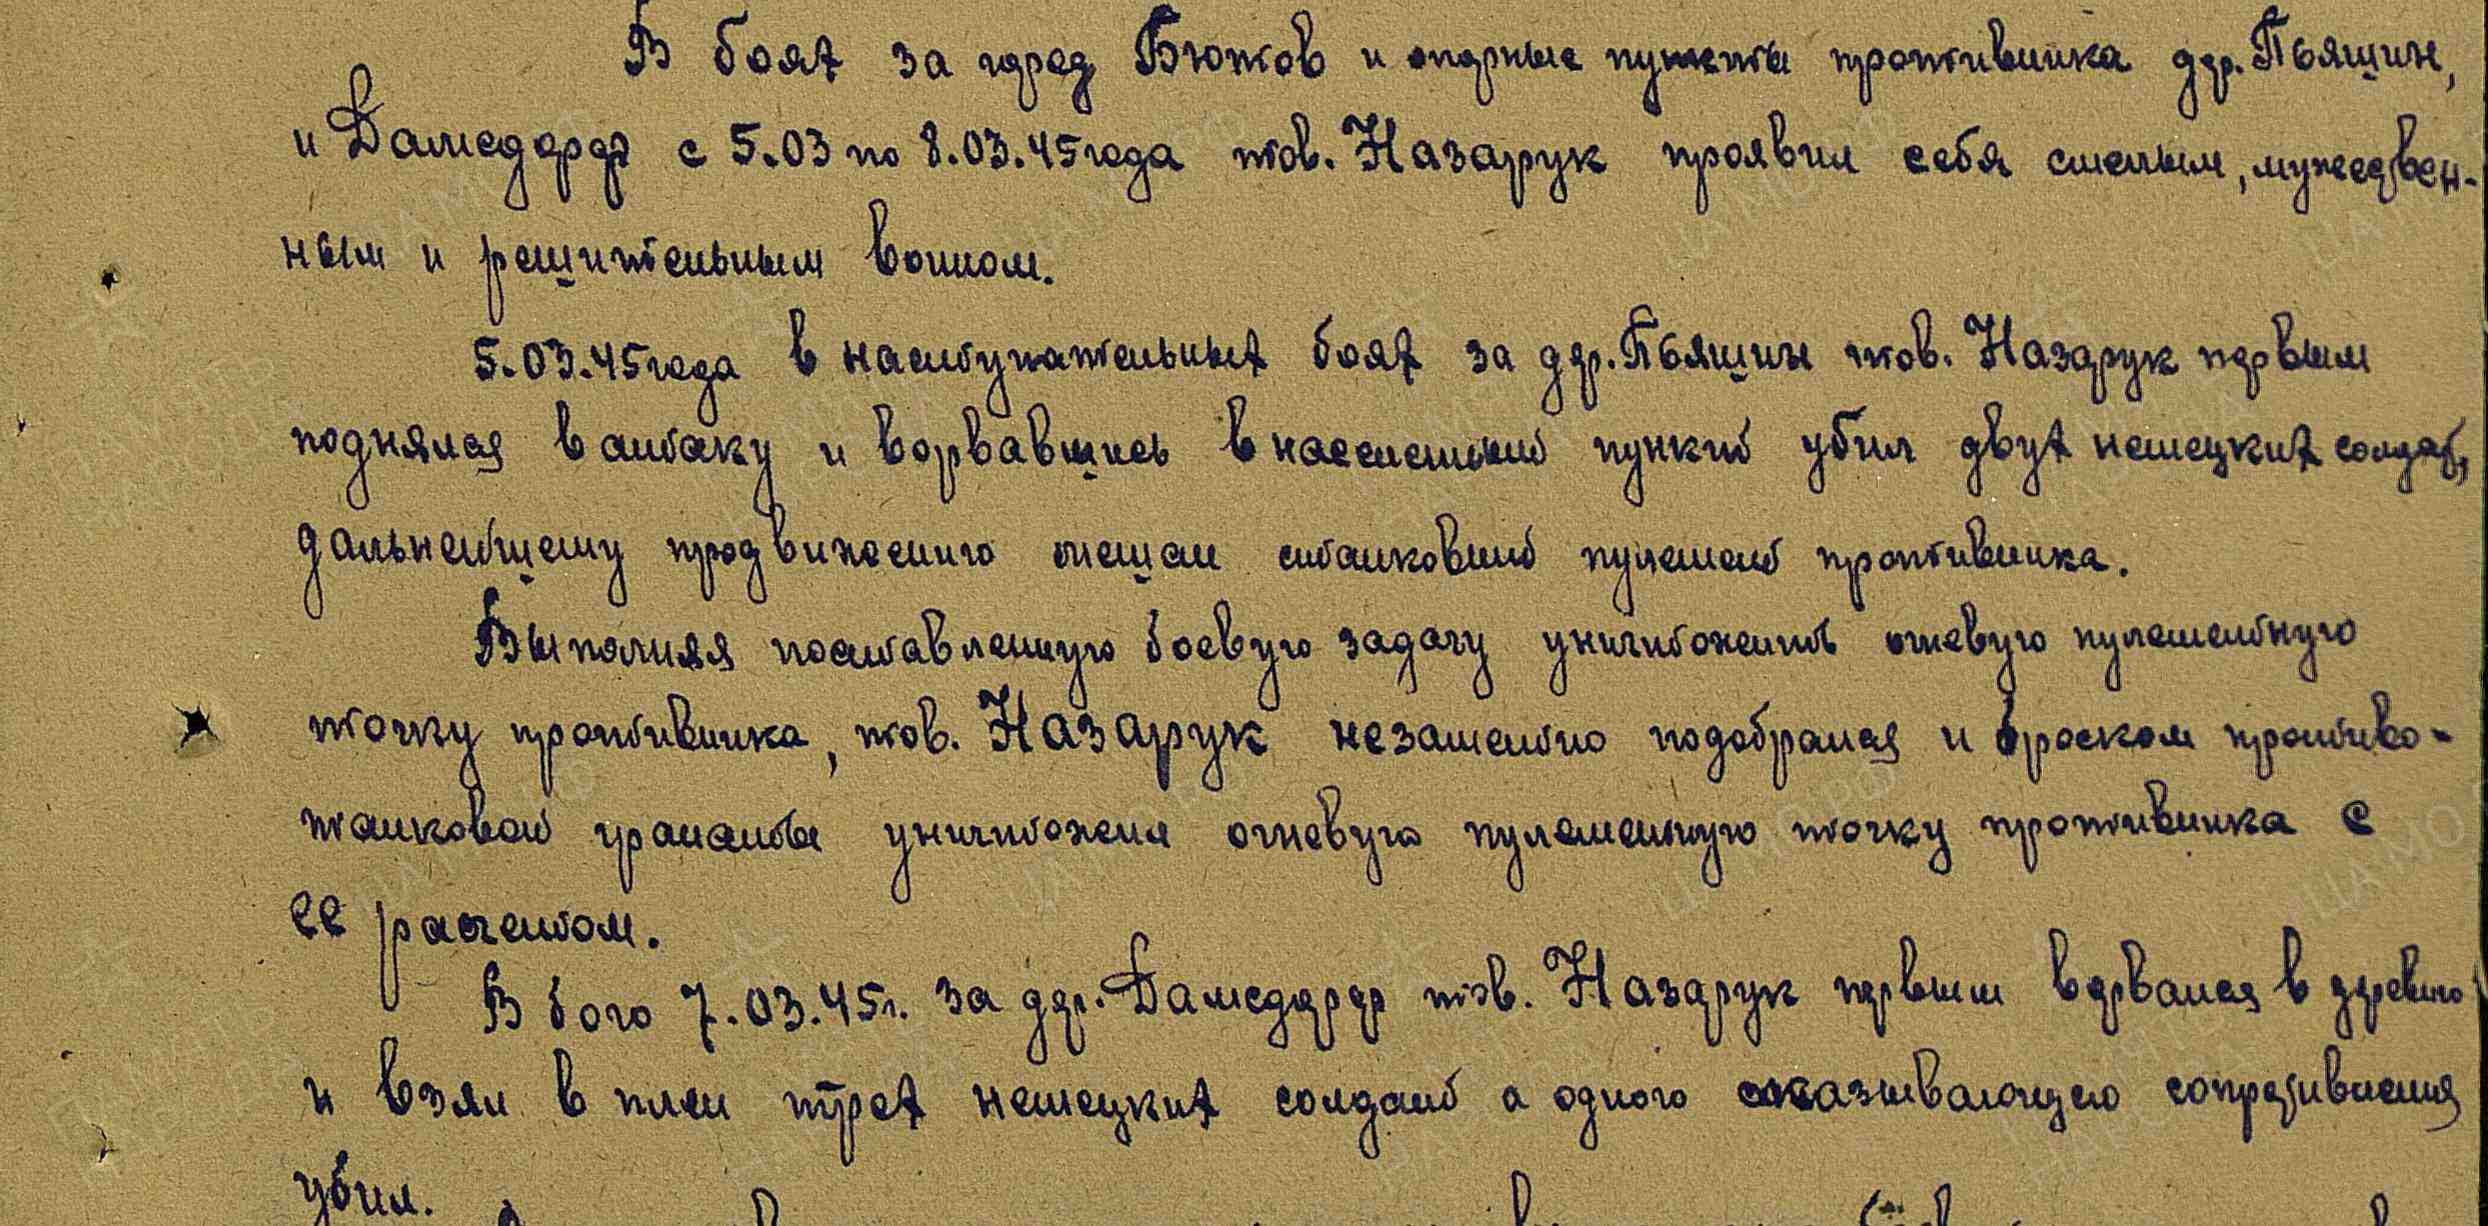 В боях за город Бютов и опорные пункты противника дер. Пьяшин,
и Дамсдорф с 5.03 по 8.03.45 года тов. Назарук проявил себя смелым, мужествен-
ным и решительным воином.
5.03.45 года в наступательных боях за дер. Пьяшин тов. Назарук первым
поднялся в атаку и ворвавшись в населенный пункт убил двух немецких солдат,
дальнейшему продвижению мешал станковый пулемет противника.
Выполняя поставленную боевую задачу уничтожить огневую пулеметную
точку противника, тов. Назарук незаметно подобрался и броском противо-
танковой гранаты уничтожил огневую пулеметную точку противника с
ее расчетом.
В бою 7.03.45г. за дер. Дамсдорф тов. Назарук первым ворвался в деревню
и взял в плен трех немецких солдат а одного оказывающего сопротивления
убил.